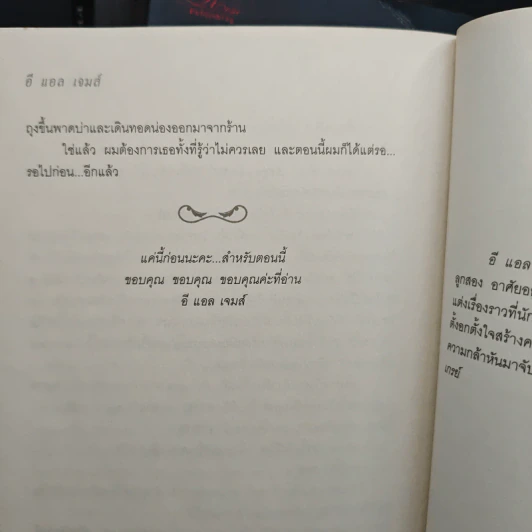 อี แอล เจมส์
ถุงขึ้นพาดบ่าและเดินทอดน่องออกมาจากร้าน
ใช่แล้ว ผมต้องการเธอทั้งที่รู้ว่าไม่ควรเลย และตอนนี้ผมก็ได้แต่รอ...
รอไปก่อน...อีกแล้ว
แค่นี้ก่อนนะคะ...สำหรับตอนนี้
ขอบคุณ ขอบคุณ ขอบคุณค่ะที่อ่าน
อี แอล เจมส์
อี แอล
ลูกสอง อาศัยอ
แต่งเรื่องราวที่นัก
ตั้งอกตั้งใจสร้างค
ความกล้าหันมาจับ
เกรย์